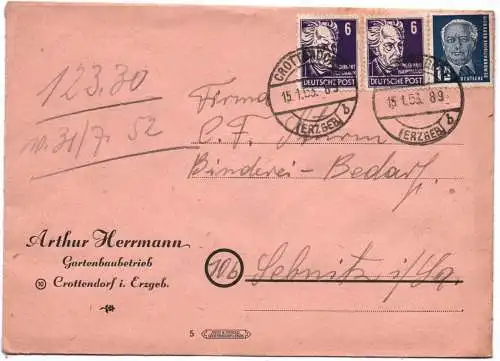 6
DEUTSCHE POST
6
DEUTSCHE POST
CROTTENDORF
15.1.53. 89
(ERZGEB) b
15.1.53. 89
(ERZGEB) b
123.30
v. 31/7. 52
Firma
C. F.
Binderei-Bedarf
10b Sebnitz i/Sa.
Arthur Herrmann
Gartenbaubetrieb
10 Crottendorf i. Erzgeb.
5